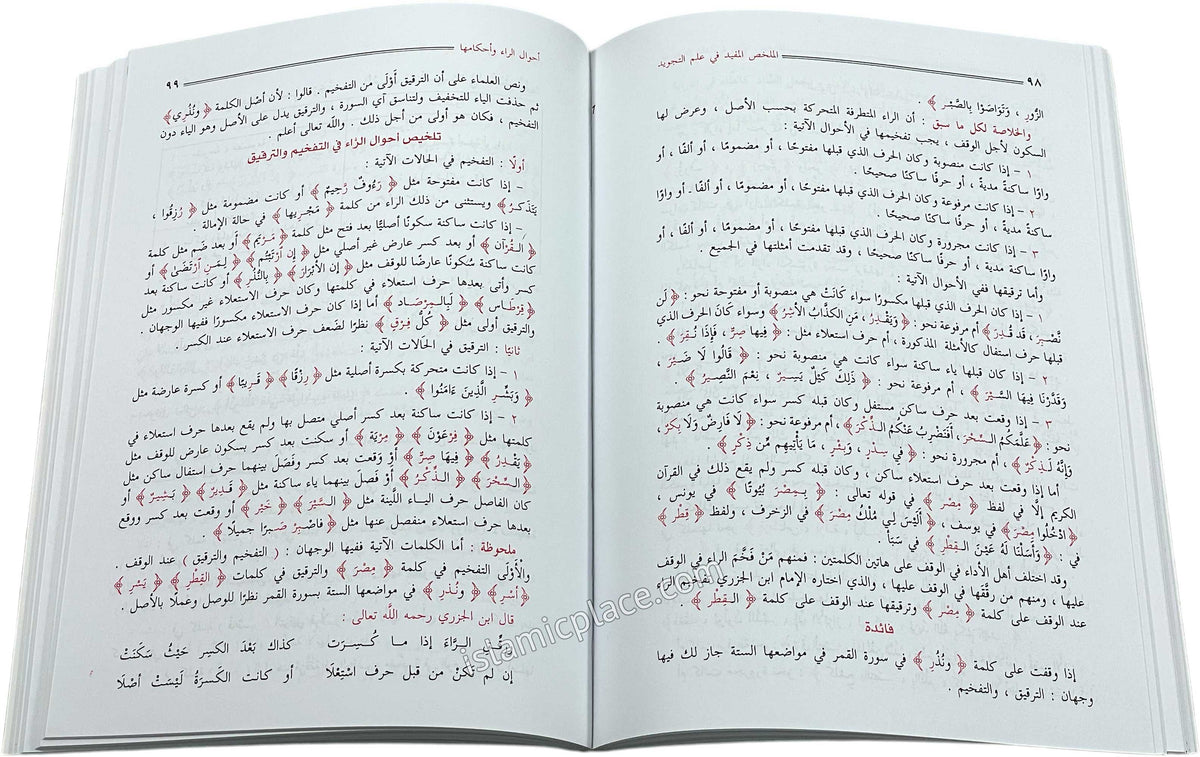 الملخص المفيد في علم التجويد
٩٨
الزُّورِ ، وَتَوَاصَوْا بِالصَّبْرِ ﴾ .
والخلاصة لكل ما سبق : أن الراء المتطرفة المتحركة بحسب الأصل ، وعرض لها
السكون لأجل الوقف ، يجب تفخيمها في الأحوال الآتية :
١ – إذا كانت منصوبة وكان الحرف الذي قبلها مفتوحًا ، أو مضمومًا ، أو ألفًا ، أو
واوًا ساكنةً مديةً ، أو حرفًا ساكنًا صحيحًا .
٢ – إذا كانت مرفوعة وكان الحرف الذي قبلها مفتوحًا ، أو مضمومًا ، أو ألفًا . أو واوًا
ساكنةً مديةً ، أو حرفًا ساكنًا صحيحًا .
٣ – إذا كانت مجرورة وكان الحرف الذي قبلها مفتوحًا ، أو مضمومًا ، أو ألفًا ، أو
واوًا ساكنة مدية ، أو حرفًا ساكنًا صحيحًا ، وقد تقدمت أمثلتها في الجميع .
وأما ترقيقها ففي الأحوال الآتية :
١ – إذا كان الحرف الذي قبلها مكسورًا سواء كَانَتْ هي منصوبة أو مفتوحة نحو : ﴿ لَن
نَّصْبِرَ ، قَدْ قُدِرَ ﴾ أم مرفوعة نحو : ﴿ وَيَقْدِرُ ، مَنِ الكَذَّابُ الأَشِرُ ﴾ وسواء كَانَ الحرف الذي
قبلها حرف استفال كالأمثلة المذكورة ، أم حرف استعلاء مثل : ﴿ فِيهَا صِرٌّ ، فَإِذَا نُقِرَ ﴾ .
٢ – إذا كان قبلها ياء ساكنة سواء كانت هي منصوبة نحو : ﴿ قَالُوا لَا ضَيْرَ ،
وَقَدَّرْنَا فِيهَا السَّيْرَ ﴾ ، أم مرفوعة نحو : ﴿ ذَلِكَ كَيْلٌ يَسِيرٌ ، نِعْمَ النَّصِيرُ ﴾ .
٣ – إذا وقعت بعد حرف ساكن مستفل وكان قبله كسر سواء كانت هي منصوبة
نحو : ﴿ عَلَّمَكُمُ السِّحْرَ، أَفَنَضْرِبُ عَنْكُمُ الذِّكْرَ ﴾ ، أم مرفوعة نحو : ﴿ لَا فَارِضٌ وَلَا بِكْرٌ ،
وَإِنَّهُ لَذِكْرٌ ﴾ ، أم مجرورة نحو : ﴿ فِي سِدْرٍ ، وَبِئْرٍ ، مَا يَأْتِيهِم مِّن ذِكْرٍ ﴾ .
أما إذا وقعت بعد حرف استعلاء ساكن ، وكان قبله كسر ولم يقع ذلك في القرآن
الكريم إلَّا في لفظ ﴿ مِصْرَ ﴾ في قوله تعالى : ﴿ بِمِصْرَ بُيُوتًا ﴾ في يونس ،
﴿ ادْخُلُوا مِصْرَ ﴾ في يوسف ، ﴿ أَلَيْسَ لِي مُلْكُ مِصْرَ ﴾ في الزخرف ، ولفظ ﴿ قِطْر ﴾
في : ﴿ وَأَسَلْنَا لَهُ عَيْنَ القِطْرِ ﴾ في سَبَأ .
وقد اختلف أهل الأداء في الوقف على هاتين الكلمتين : فمنهم مَنْ فَخَّمَ الراء في الوقف
عليها ، ومنهم من رقَّقَها في الوقف عليها ، والذي اختاره الإمام ابن الجزري تفخيم الراء
عند الوقف على كلمة ﴿ مِصْرَ ﴾ وترقيقها عند الوقف على كلمة ﴿ القِطْرِ ﴾ .
فائدة
إذا وقفت على كلمة ﴿ وَنُذُرِ ﴾ في سورة القمر في مواضعها الستة جاز لك فيها
وجهان : الترقيق ، والتفخيم .
أحوال الراء وأحكامها
٩٩
ونص العلماء على أن الترقيق أَوْلَى من التفخيم . قالوا : لأن أصْل الكلمة ﴿ وَنُذُرِي ﴾
ثم حذفت الياء للتخفيف ولتناسق آي السورة ، والترقيق يدل على الأصل وهو الياء دون
التفخيم ، فكان هو أولى من أجل ذلك . واللَّه تعالى أعلم .
تلخيص أحوال الرَّاء في التفخيم والترقيق
أولًا : التفخيم في الحالات الآتية :
– إذا كانت مفتوحة مثل ﴿ رَءُوفٌ رَّحِيمٌ ﴾ أو كانت مضمومة مثل ﴿ رُزِقُوا ،
يَتَذَكَّرُ ﴾ ويستثنى من ذلك الراء من كلمة ﴿ مَجْرِيهَا ﴾ في حالة الإمالة .
– إذا كانت ساكنة سكونًا أصليًّا بعد فتح مثل كلمة ﴿ مَرْيَمَ ﴾ أو بعد ضم مثل كلمة
﴿ القُرْآن ﴾ أو بعد كسر عارض غير أصلي مثل ﴿ إِنِ ارْتَبْتُمْ ﴾ ﴿ لِمَنِ ارْتَضَى ﴾ أو
كانت ساكنة سُكونًا عارضًا للوقف مثل ﴿ إِنَّ الأَبْرَارَ ﴾ ﴿ بِالنُّذُرِ ﴾ أو كانت ساكنة بعد
كسر وأتى بعدها حرف استعلاء في كلمتها وكان حرف الاستعلاء غير مكسور مثل
﴿ قِرْطَاسٍ ﴾ ﴿ لَبِالْمِرْصَادِ ﴾ أما إذا كان حرف الاستعلاء مكسورًا ففيها الوجهان .
والترقيق أولى مثل ﴿ كُلُّ فِرْقٍ ﴾ نظرًا لضَعف حرف الاستعلاء عند الكسر .
ثانيًا : الترقيق في الحالات الآتية :
١ – إذا كانت متحركة بكسرة أصلية مثل ﴿ رِزْقًا ﴾ ﴿ قَرِيبًا ﴾ أو كسرة عارضة مثل
﴿ وَبَشِّرِ الَّذِينَ ءَامَنُوا ﴾ .
٢ – إذا كانت ساكنة بعد كسر أصلي متصل بها ولم يقع بعدها حرف استعلاء في
كلمتها مثل ﴿ فِرْعَوْنَ ﴾ ﴿ مِرْيَة ﴾ أو سكنت بعد كسر بسكون عارض للوقف مثل
﴿ يَقْدِرُ ﴾ ﴿ فِيهَا صِرٌّ ﴾ أَوْ وَقعت بعد كسر وفَصَلَ بينهما حرف استفال ساكن مثل
﴿ السِّحْرَ ﴾ ﴿ الذِّكْرُ ﴾ أوْ فَصل بينهما ياء ساكنة مثل ﴿ قَدِيرٌ ﴾ ﴿ بَشِيرٌ ﴾ أو
كان الفاصل حرف الياء اللَّينة مثل ﴿ السَّيْرَ ﴾ ﴿ خَيْر ﴾ أو وقعت بعد كسر ووقع
بعدها حرف استعلاء منفصل عنها مثل ﴿ فَاصْبِرْ صَبْرًا جَمِيلًا ﴾ .
ملحوظة : أما الكلمات الآتية ففيها الوجهان : ( التفخيم والترقيق ) عند الوقف .
والأَوْلَى التفخيم في كلمة ﴿ مِصْرَ ﴾ والترقيق في كلمات ﴿ القِطْرِ ﴾ ﴿ يَسْرِ ﴾
﴿ أَسْرِ ﴾ ﴿ وَنُذُرِ ﴾ في مواضعها الستة بسورة القمر نظرًا للوصل وعملًا بالأصل .
قال ابن الجزري رحمه اللَّه تعالى :
ورقِّقِ الرَّاءَ إذا ما كُسِرَتْ كذاك بَعْدَ الكَسرِ حَيْثُ سَكَنَتْ
إن لم تَكُنْ من قبل حرف اسْتِعْلَا أو كانت الكَسرَةُ لَيْسَتْ أصْلَا
islamicplace.com